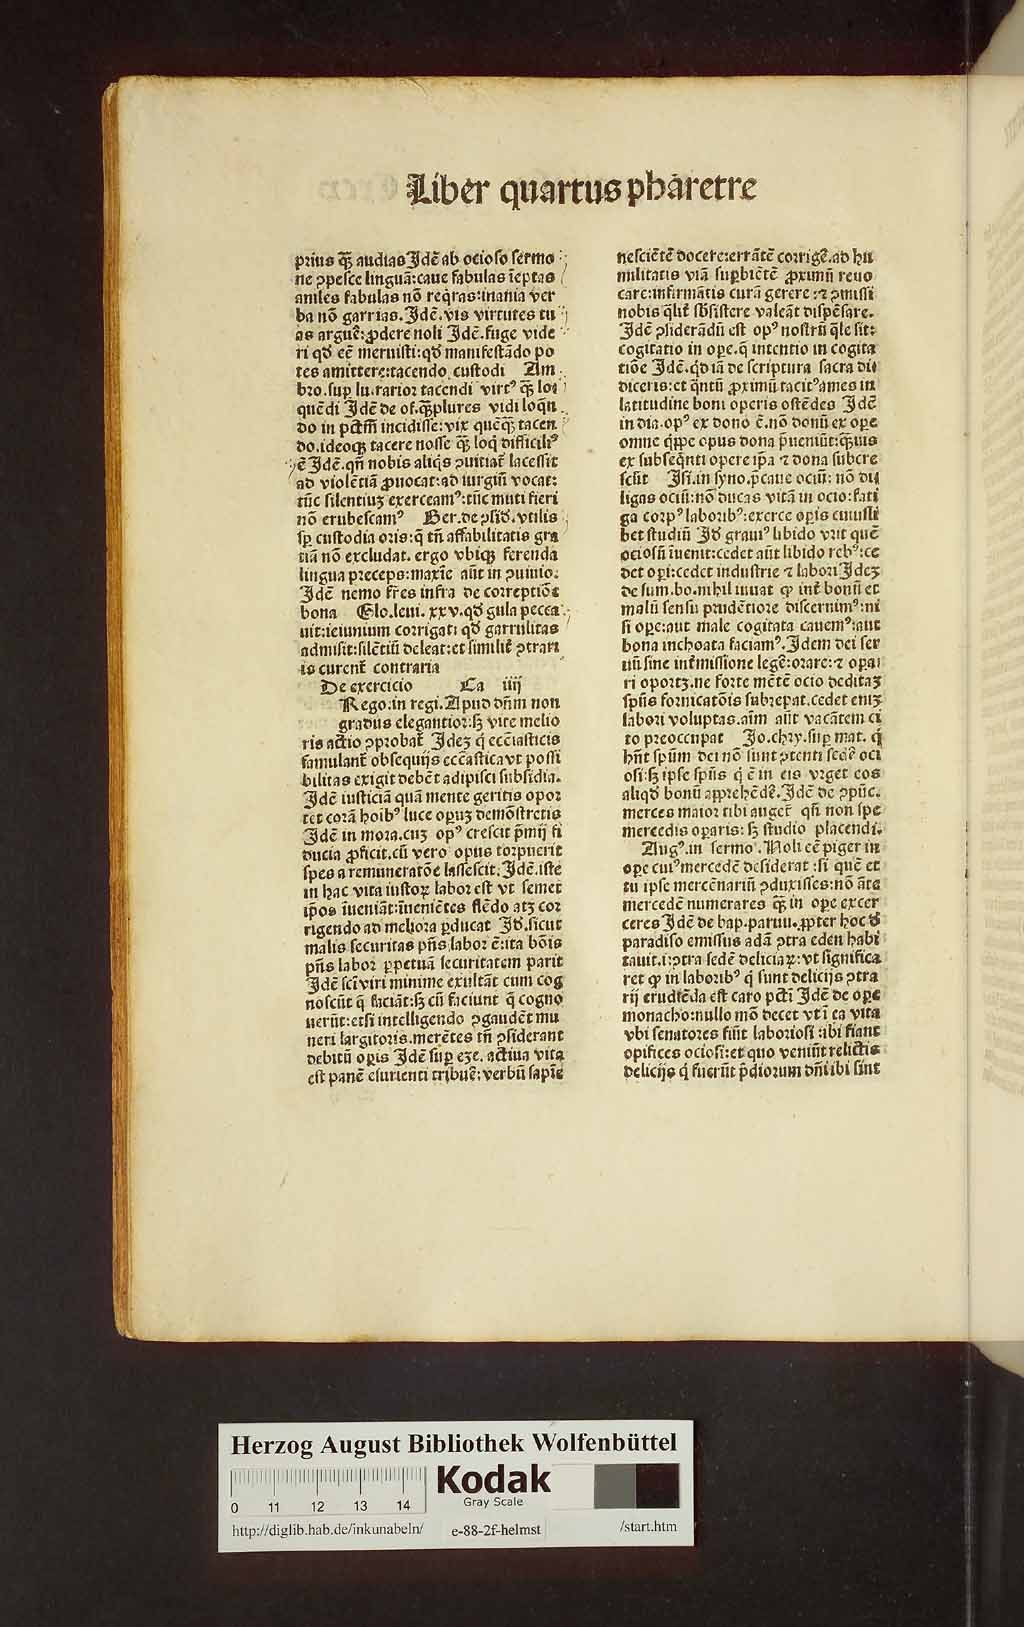 Liber quartus pharetre
prius qȝ audias Jdē ab ocioso sermo
ne ꝯpesce linguā: caue fabulas īeptas
aniles fabulas nō reqras: inania ver
ba nō garrias. Jdē. vis virtutes tu
as arguē: ꝓdere noli Jdē. fuge vide
ri qđ eē meruisti: qđ manifestādo po
tes amittere: tacendo custodi Am
bro. suꝑ lu. rarior tacendi virtꝰ qȝ lo
quēdi Jdē de of. qȝplures vidi loqn̄
do in pctm̄ incidisse: vix quēqȝ tacen
do. ideoqȝ tacere nosse qȝ loq̄ difficiliꝰ
ē Jdē. qn̄ nobis aliqs ꝯuitiat̄ lacessit
ad violētiā ꝓuocat: ad iurgiū vocat:
tūc silentiuȝ exerceamꝰ: tūc muti fieri
nō erubescamꝰ Ber. de ꝯsid. vtilis
sꝑ custodia oris: q̄ tn̄ affabilitatis gra
tiā nō excludat. ergo vbiqȝ ferenda
lingua preceps: maxīe aūt in ꝯuiuio.
Jdē nemo fr̄es infra de correptiōe
bona Glo. leui. xxv. qđ gula pecca
uit: ieiunium corrigat: qđ garrulitas
admisit: silētiū deleat: et similit̄ ꝯtrari
is curent̄ contraria
De exercicio Ca iiij
Rego: in regi. Apud dn̄m non
gradus elegantior: sȝ vite melio
ris actio ꝯprobat̄ Jdeȝ q̄ ecc̄iasticis
famulant̄ obsequijs ecc̄astica vt possi
bilitas exigit debēt adipisci subsidia.
Jdē iusticiā quā mente geritis opor
tet corā hoībꝰ luce oꝑuȝ demōstretis
Jdē in mora. cuȝ opꝰ crescit p̄mij fi
ducia ꝓficit. cū vero opus torpuerit
spes a remuneratōe lassescit. Jdē. iste
in hac vita iustoꝝ labor est vt semet
ip̄os īueniāt: īueniētes flēdo atȝ cor
rigendo ad meliora ꝑducat Jđ. sicut
malis securitas pn̄s labor ē: ita bōis
pn̄s labor ꝑpetuā securitatem parit
Jdē sc̄i viri minime exultāt cum cog
noscūt q̄ faciāt: sȝ cū faciunt q̄ cogno
uerūt: etsi intelligendo ꝯgaudēt mu
neri largitoris. merētes tn̄ ꝯsiderant
debitū oꝑis Jdē suꝑ eȝe. actiua vita
est panē esurienti tribuē: verbū sapīe
nesciētē docere: errātē corrigē. ad hu
militatis viā suꝑbiētē ꝓximū reuo
care: infirmātis curā gerere: ⁊ ꝯmissi
nobis qlit̄ sb̄sistere valeāt dispēsare.
Jdē ꝯsiderādū est opꝰ nostrū q̄le sit:
cogitatio in oꝑe. q̄ intentio in cogita
tiōe Jdē. qđ iā de scriptura sacra di
diceris: et q̄ntū ꝓximū tacitꝰ ames in
latitudine boni operis ostēdes Jdē
in dia. opꝰ ex dono ē. nō donū ex oꝑe
omne q̄ppe opus dona p̄ueniūt: qȝuis
ex subseq̄nti opere ip̄a ⁊ dona subcre
scūt Jsi. in syno. p̄caue ociū: nō di
ligas ociū: nō ducas vitā in ocio: fati
ga corpꝰ laboribꝰ: exerce oꝑis cuiusli
bet studiū Jđ grauiꝰ libido vrit quē
ociosū īuenit: cedet aūt libido rebꝰ: ce
det oꝑi: cedet industrie ⁊ labori Jdeȝ
de sum. bo. nihil iuuat ꝙ int̄ bonū et
malū sensu prudētiore discernimꝰ: ni
si oꝑe: aut male cogitata cauemꝰ: aut
bona inchoata faciamꝰ. Jdem dei ser
uū sine int̄missione legē: orare: ⁊ opa
ri oportȝ. ne forte mētē ocio deditaȝ
spūs fornicatōis subrepat. cedet eniȝ
labori voluptas. aīm aūt vacātem ci
to preoccupat Jo. chry. suꝑ mat. q̄
hn̄t spūm dei nō sunt ꝯtenti sedē oci
osi: sȝ ipse spūs q̄ ē in eis vrget eos
aliqđ bonū apprehēdē. Jdē de ꝯpūc.
merces maior tibi auget̄ qn̄ non spe
mercedis oꝑaris: sȝ studio placendi.
Augꝰ. in sermo. Noli eē piger in
oꝑe cuiꝰ mercedē desiderat: si quē et
tu ipse mercēnariū ꝯduxisses: nō āte
mercedē numerares qȝ in oꝑe excer
ceres Jdē de bap. paruu. ꝓpter hoc đ
paradiso emissus adā ꝯtra eden habi
tauit. i: ꝯtra sedē deliciaꝝ: vt significa
ret ꝙ in laboribꝰ q̄ sunt delicijs ꝯtra
rij erudiēda est caro pcti Jdē de oꝑe
monacho: nullo mō decet vt ī ea vita
vbi senatores fiūt laboriosi ibi fiant
opifices ociosi: et quo veniūt relictis
delicijs q̄ fuerūt p̄diorum dn̄i ibi sint
Herzog August Bibliothek Wolfenbüttel
Kodak
Gray Scale
0 11 12 13 14
http://diglib.hab.de/inkunabeln/ e-88-2f-helmst /start.htm